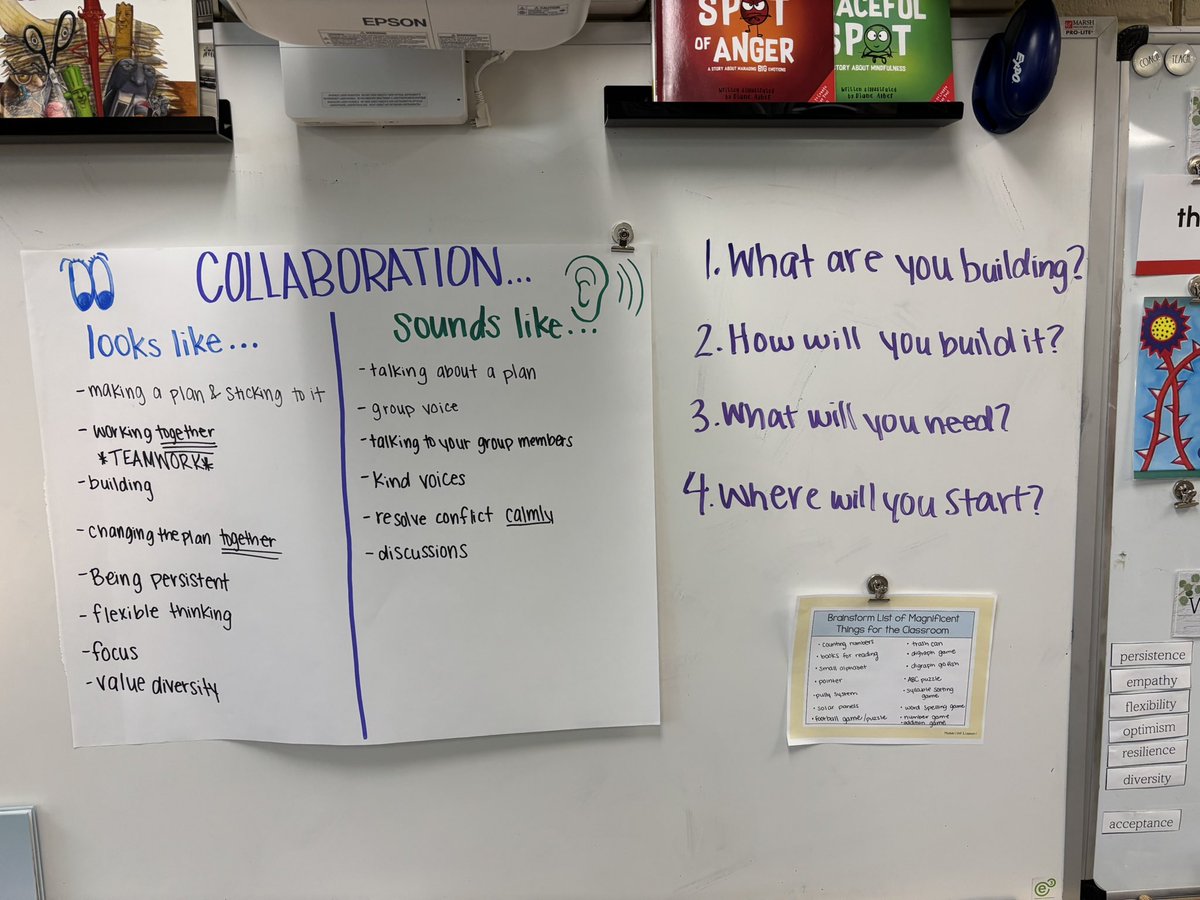 EPSON
SPOT
OF ANGER
A STORY ABOUT MANAGING BIG EMOTIONS
Diane Alber
ACEFUL
SPOT
STORY ABOUT MINDFULNESS
Diane Alber
EXPO
MARSH
PRO-LITE
COLLABORATION...
looks like...
- making a plan & sticking to it
- working together
*TEAMWORK*
- building
- changing the plan together
- Being persistent
- flexible thinking
- focus
- value diversity
sounds like...
- talking about a plan
- group voice
- talking to your group members
- Kind voices
- resolve conflict calmly
- discussions
1. What are you building?
2. How will you build it?
3. What will you need?
4. Where will you start?
Brainstorm List of Magnificent
Things for the Classroom
• counting numbers
• books for reading
• small alphabet
• pointer
• pully system
• solar panels
• football game/puzzle
• trash can
• digraph game
• digraph go fish
• ABC puzzle
• syllable sorting
game
• word spelling game
• number game
• addition game
th
persistence
empathy
flexibility
optimism
resilience
diversity
acceptance